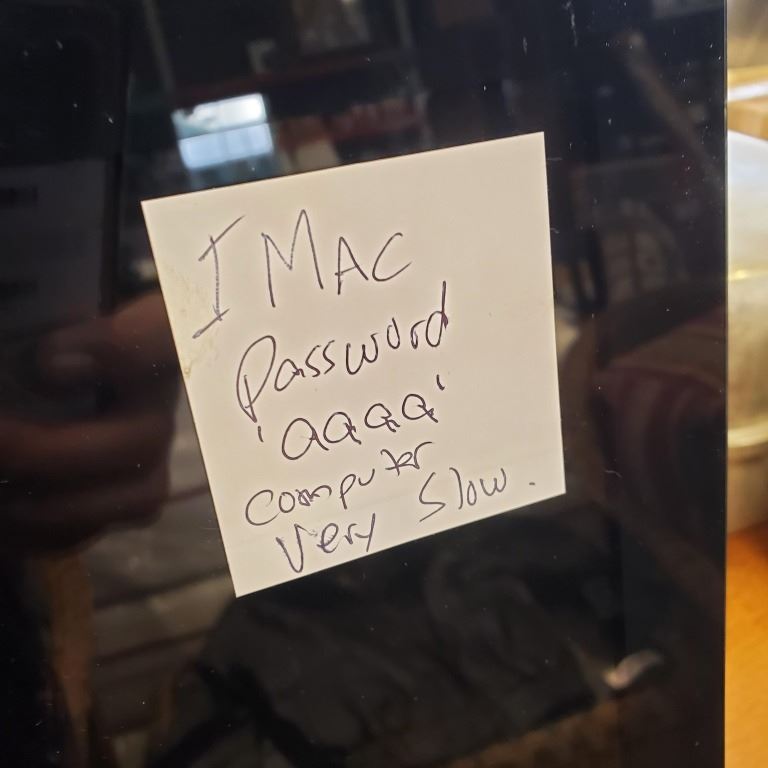 I MAC
Password
'aaaa'
computer
Very Slow.